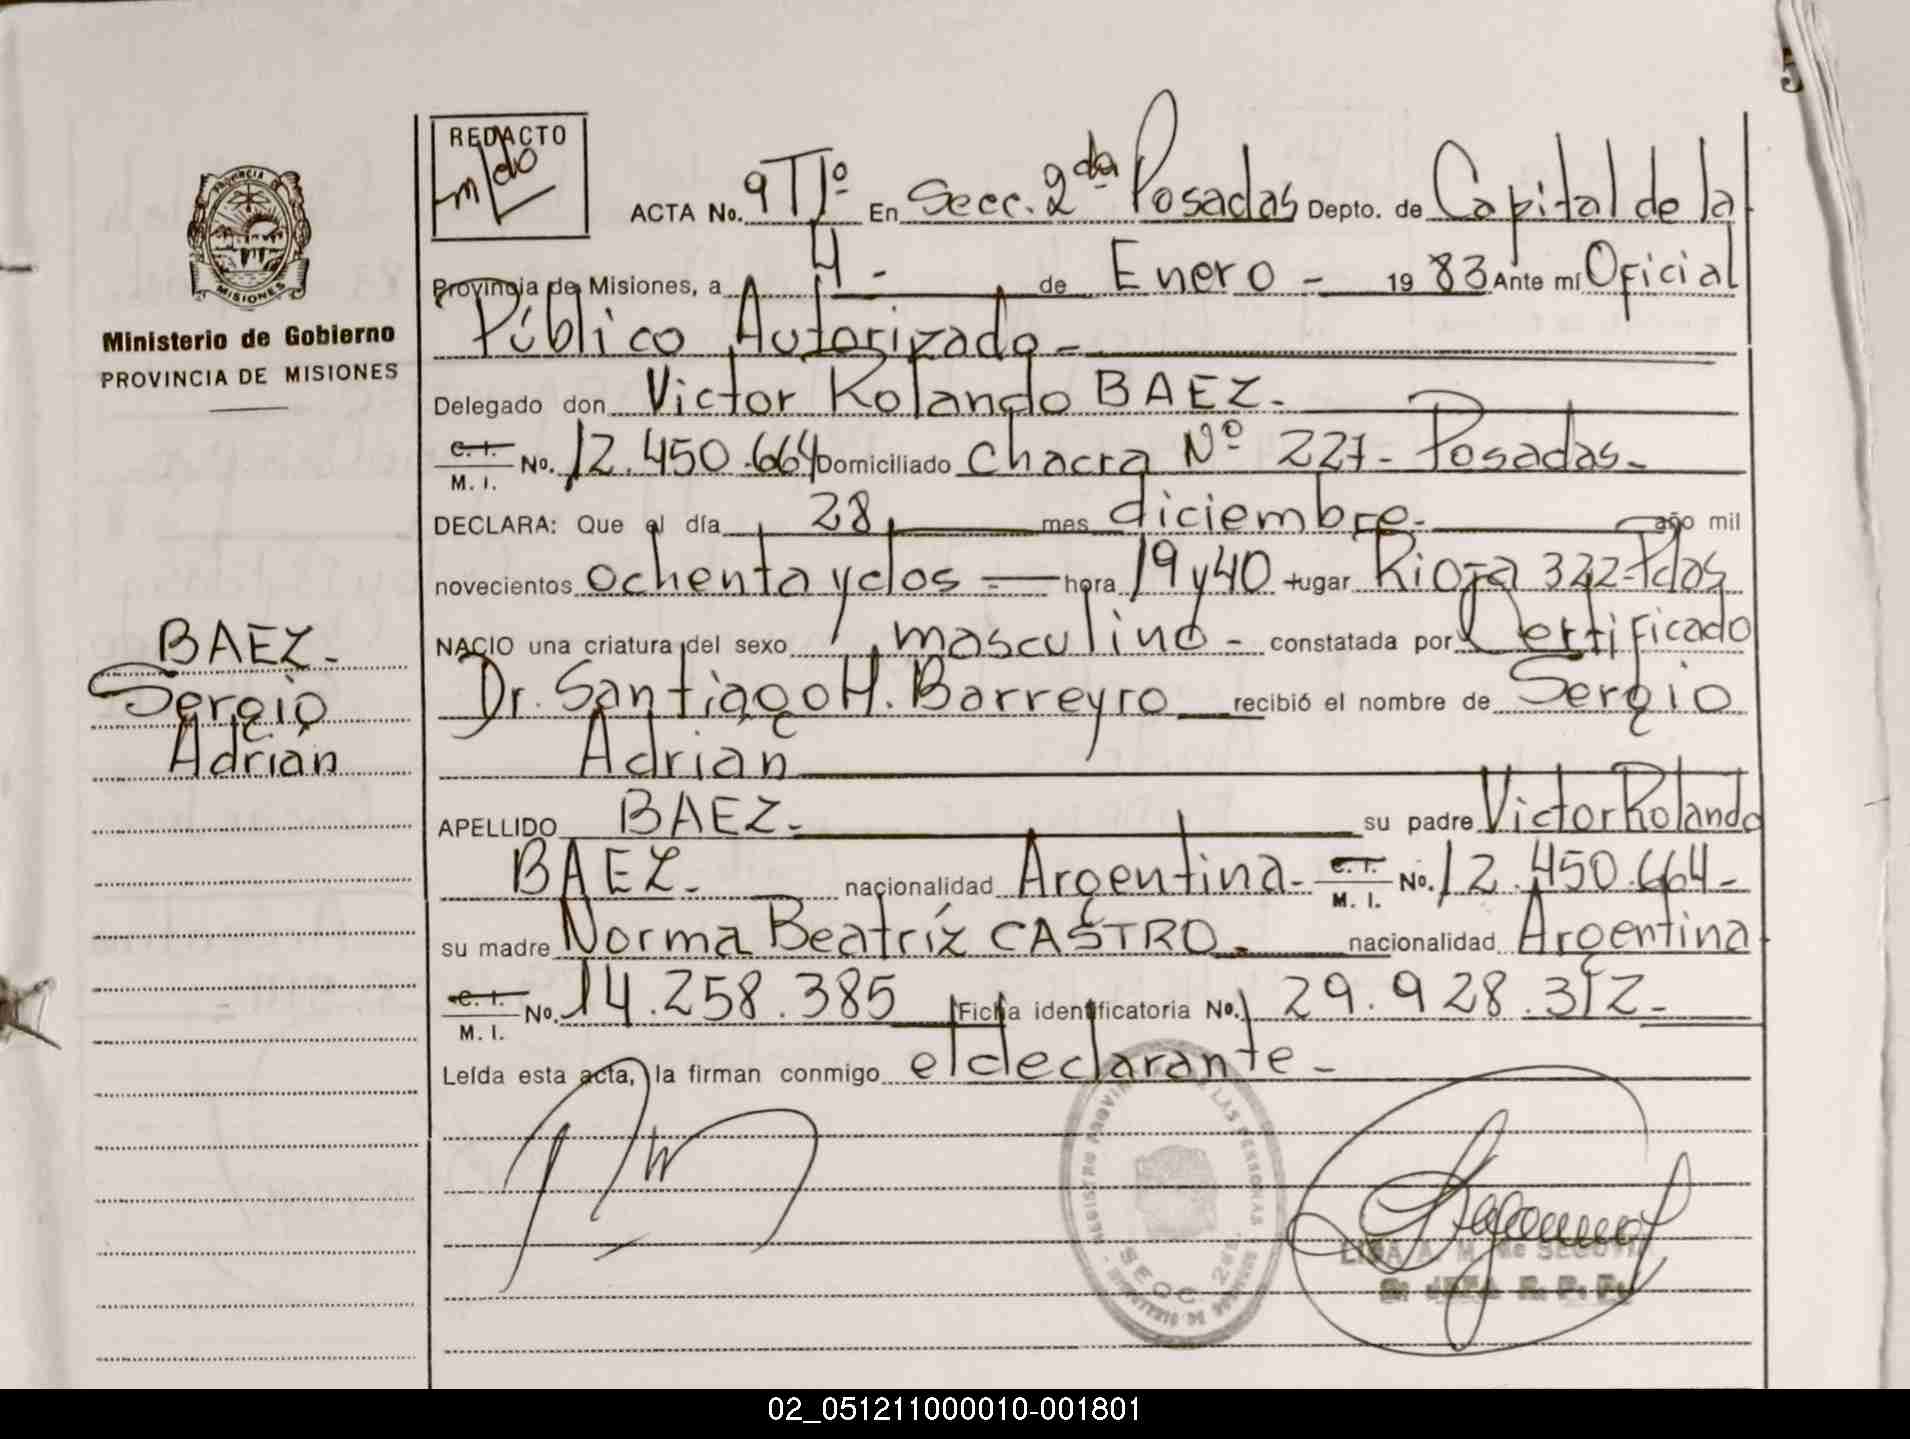 5
REDACTO
PROVINCIA DE MISIONES
Ministerio de Gobierno
PROVINCIA DE MISIONES
ACTA No. 9 TIº En Secc. 2da Posadas Depto. de Capital de la
Provincia de Misiones, a 4 - de Enero - 1983 Ante mí Oficial
Público Autorizado -
Delegado don Victor Rolando BAEZ.
C.I. M. I. No. 12.450.664 Domiciliado chacra Nº 227 - Posadas -
DECLARA: Que el día 28 mes diciembre. año mil
novecientos ochenta y dos = hora 19 y 40 lugar Rioja 322 - Pdas
NACIO una criatura del sexo masculino - constatada por Certificado
Dr. Santiago H. Barreyro recibió el nombre de Sergio
Adrian
APELLIDO BAEZ - su padre Victor Rolando
BAEZ. nacionalidad Argentina - C.I. M. I. No. 12.450.664 -
su madre Norma Beatríz CASTRO. nacionalidad Argentina
C.I. M. I. No. 14.258.385 Ficha identificatoria No. 29.928.312 -
Leída esta acta, la firman conmigo el declarante -
BAEZ -
Sergio
Adrian
SECC 2da.
02_051211000010-001801